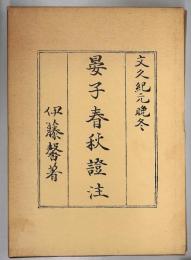 文久紀元晚冬
晏子春秋證注
伊藤馨著